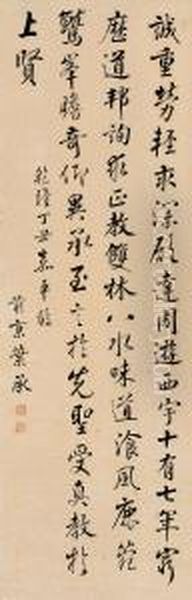 誠重勞輕求深願達周遊西宇十有七年窮
歷道邦詢求正教雙林八水味道飡風鹿菀
鷲峯瞻奇仰異承至言於先聖受真教於
上賢
乾隆丁丑嘉平
蔣熏業承